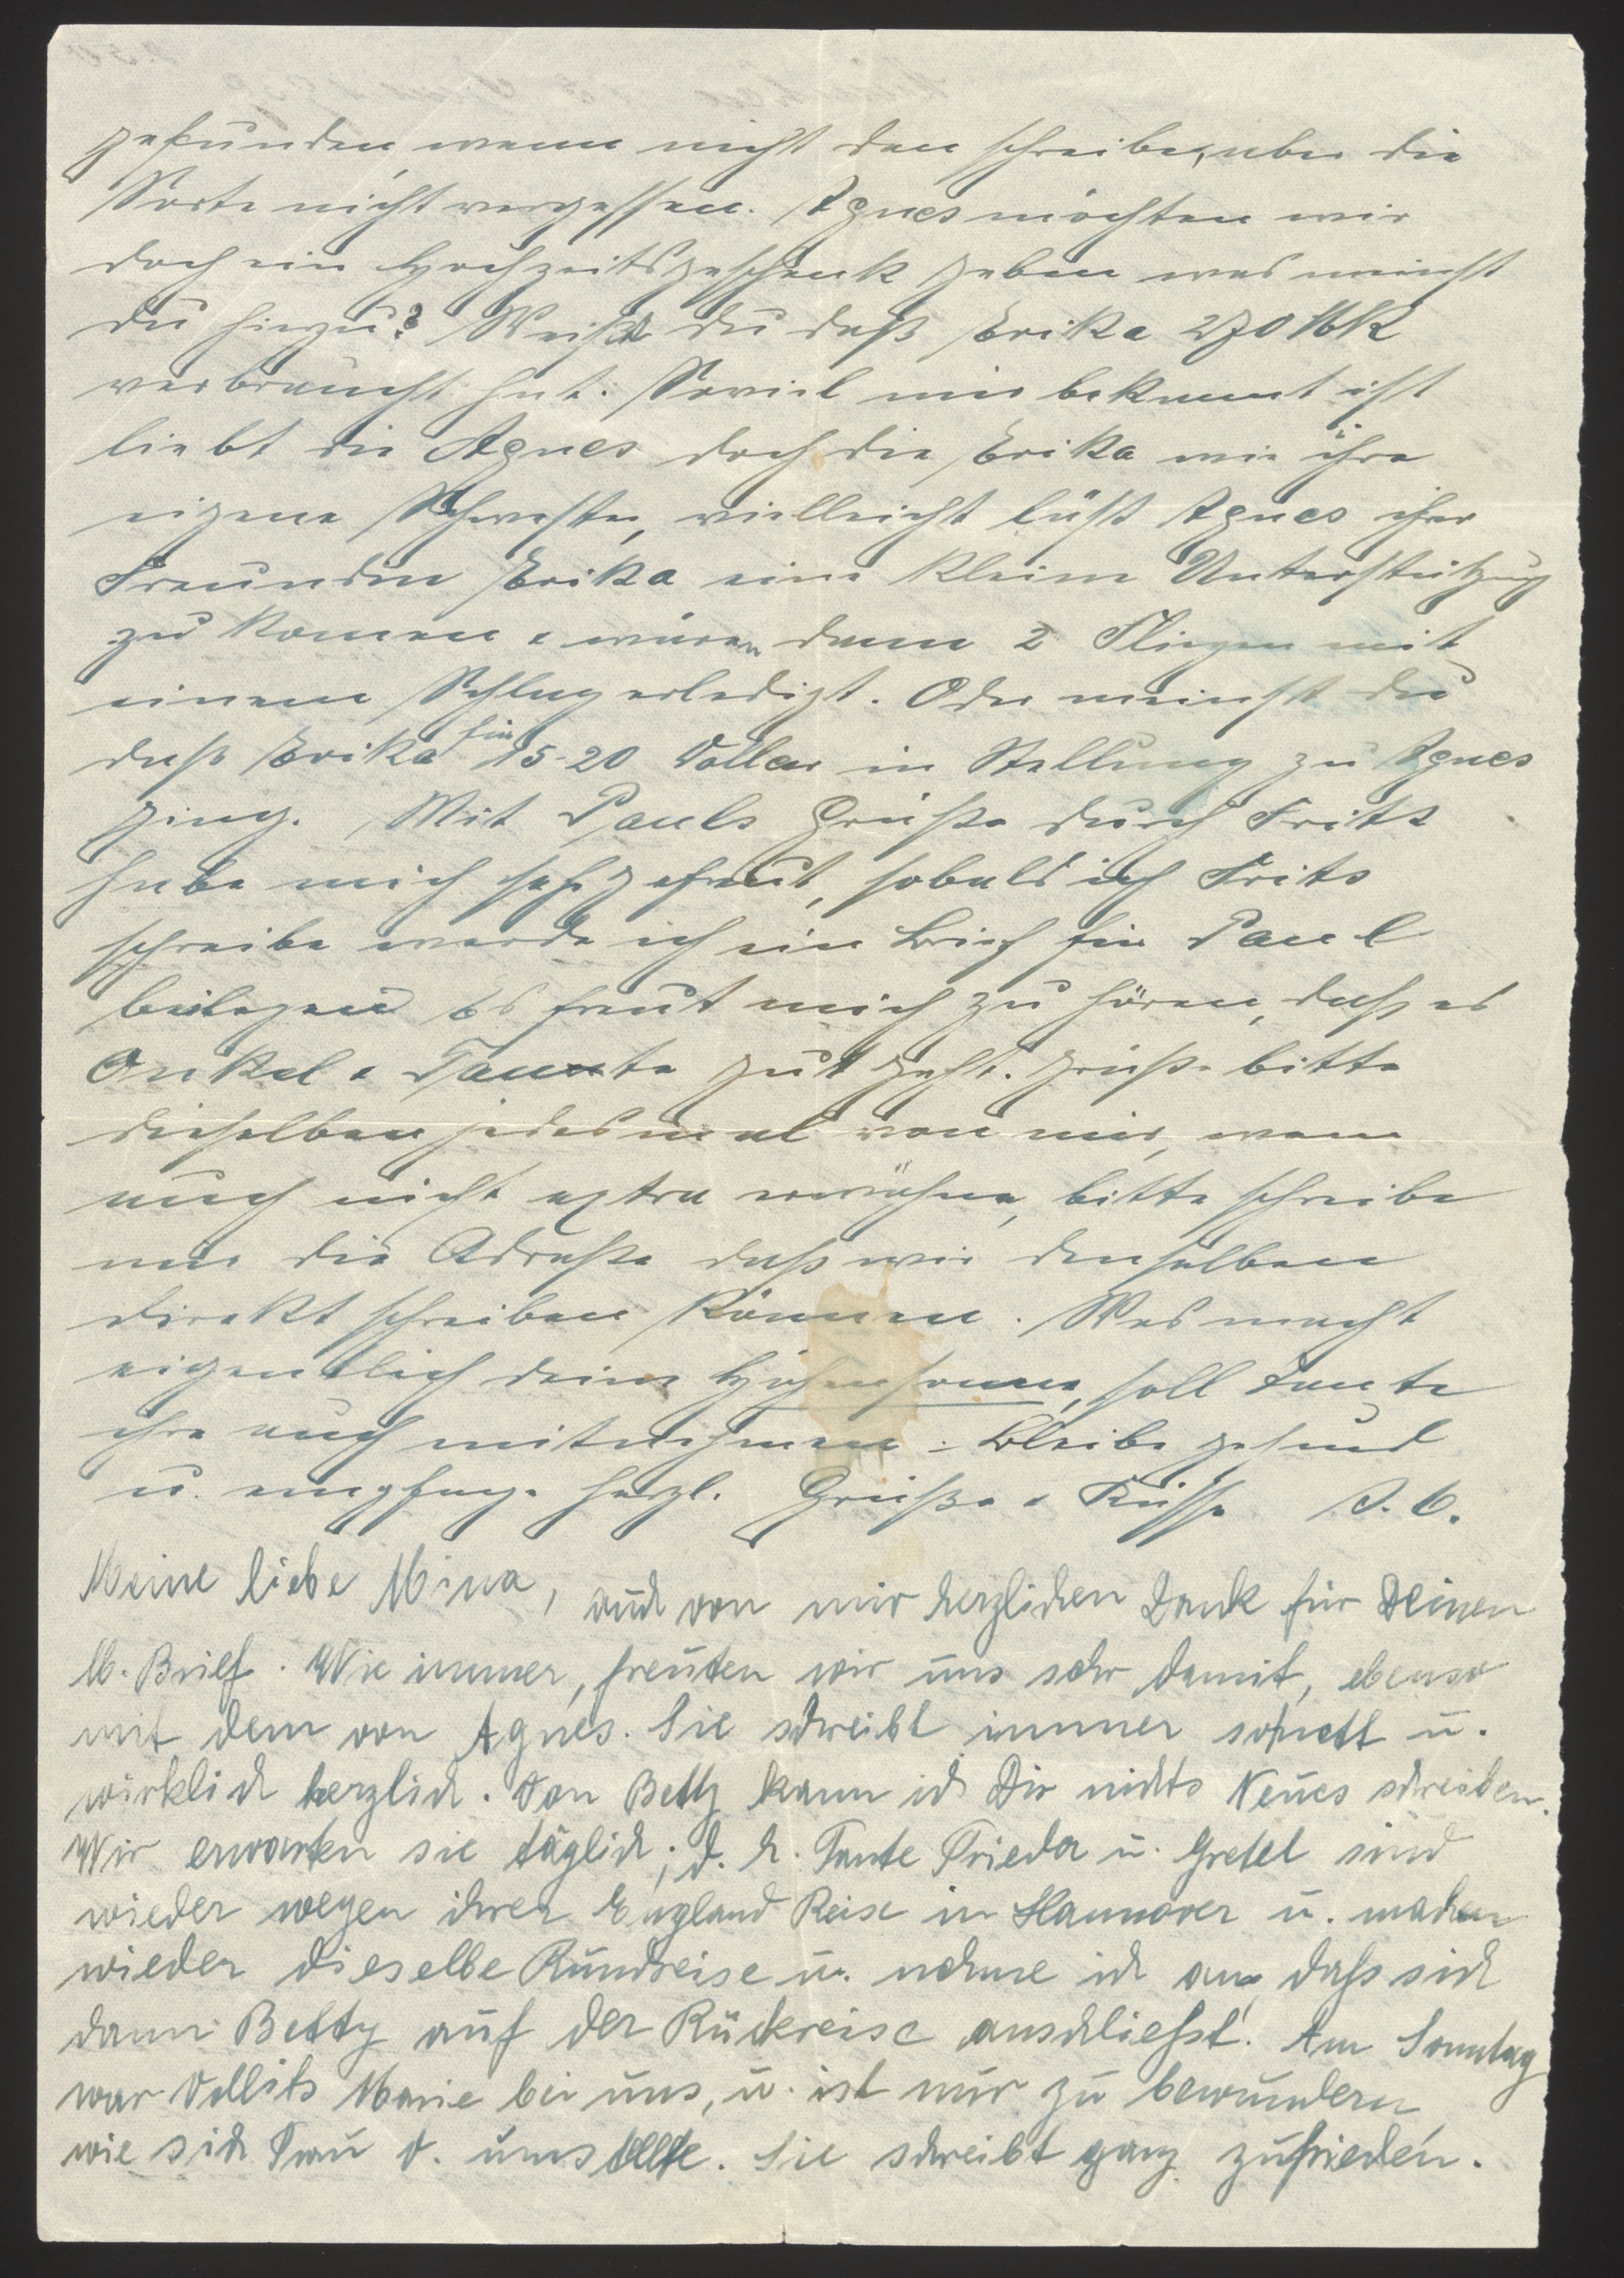 gefunden wenn nicht den schreiben, aber die
Sorte nicht vergessen. Agnes möchten wir
doch ein Hochzeitsgeschenk geben was meinst
du hiezu? Weißt du daß Erika 270 Mk
verbraucht hat. Soviel mir bekannt ist
liebt die Agnes doch die Erika wie ihre
eigene Schwester, vielleicht läßt Agnes ihrer
Freundin Erika eine kleine Unterstützung
zu komen & wären dann 2 Fliegen mit
einem Schlag erledigt. Oder meinst du
daß Erika für 15-20 Dollar in Stellung zu Agnes
ging. Mit Pauls Grüße durch Fritz
habe mich sehr gefreut, sobald ich Frits
schreibe werde ich ein Brief für Paul
beilegen Es freut mich zu hören, daß es
Onkel & Tante gut geht. grüße bitte
dieselben jedesmal von mir, wenn
auch nicht extra erwähne, bitte schreibe
mir die Adreße daß wir denselben
direkt schreiben können. Was macht
eigentlich deine Höhensonne, soll Tante
ihre auch mitnehmen. Bleibe gesund
u. empfange herzl. Grüße & Küsse
Meine liebe Mina, auch von mir herzlichen Dank für Deinen
lb. Brief. Wie immer, freuten wir uns sehr damit, ebenso
mit dem von Agnes. Sie schreibt immer so nett u.
wirklich herzlich. Von Betty kann ich Dir nichts Neues schreiben.
Wir erwarten sie täglich; d. h. Tante Frieda u. Gretel sind
wieder wegen ihrer England Reise in Hannover u. machen
wieder dieselbe Rundreise u. nehme ich an, daß sich
dann Betty auf der Rückreise anschließt. Am Sonntag
war Marie bei uns, u. ist nur zu bewundern
wie sich Frau V. umstellte. Sie schreibt ganz zufrieden.